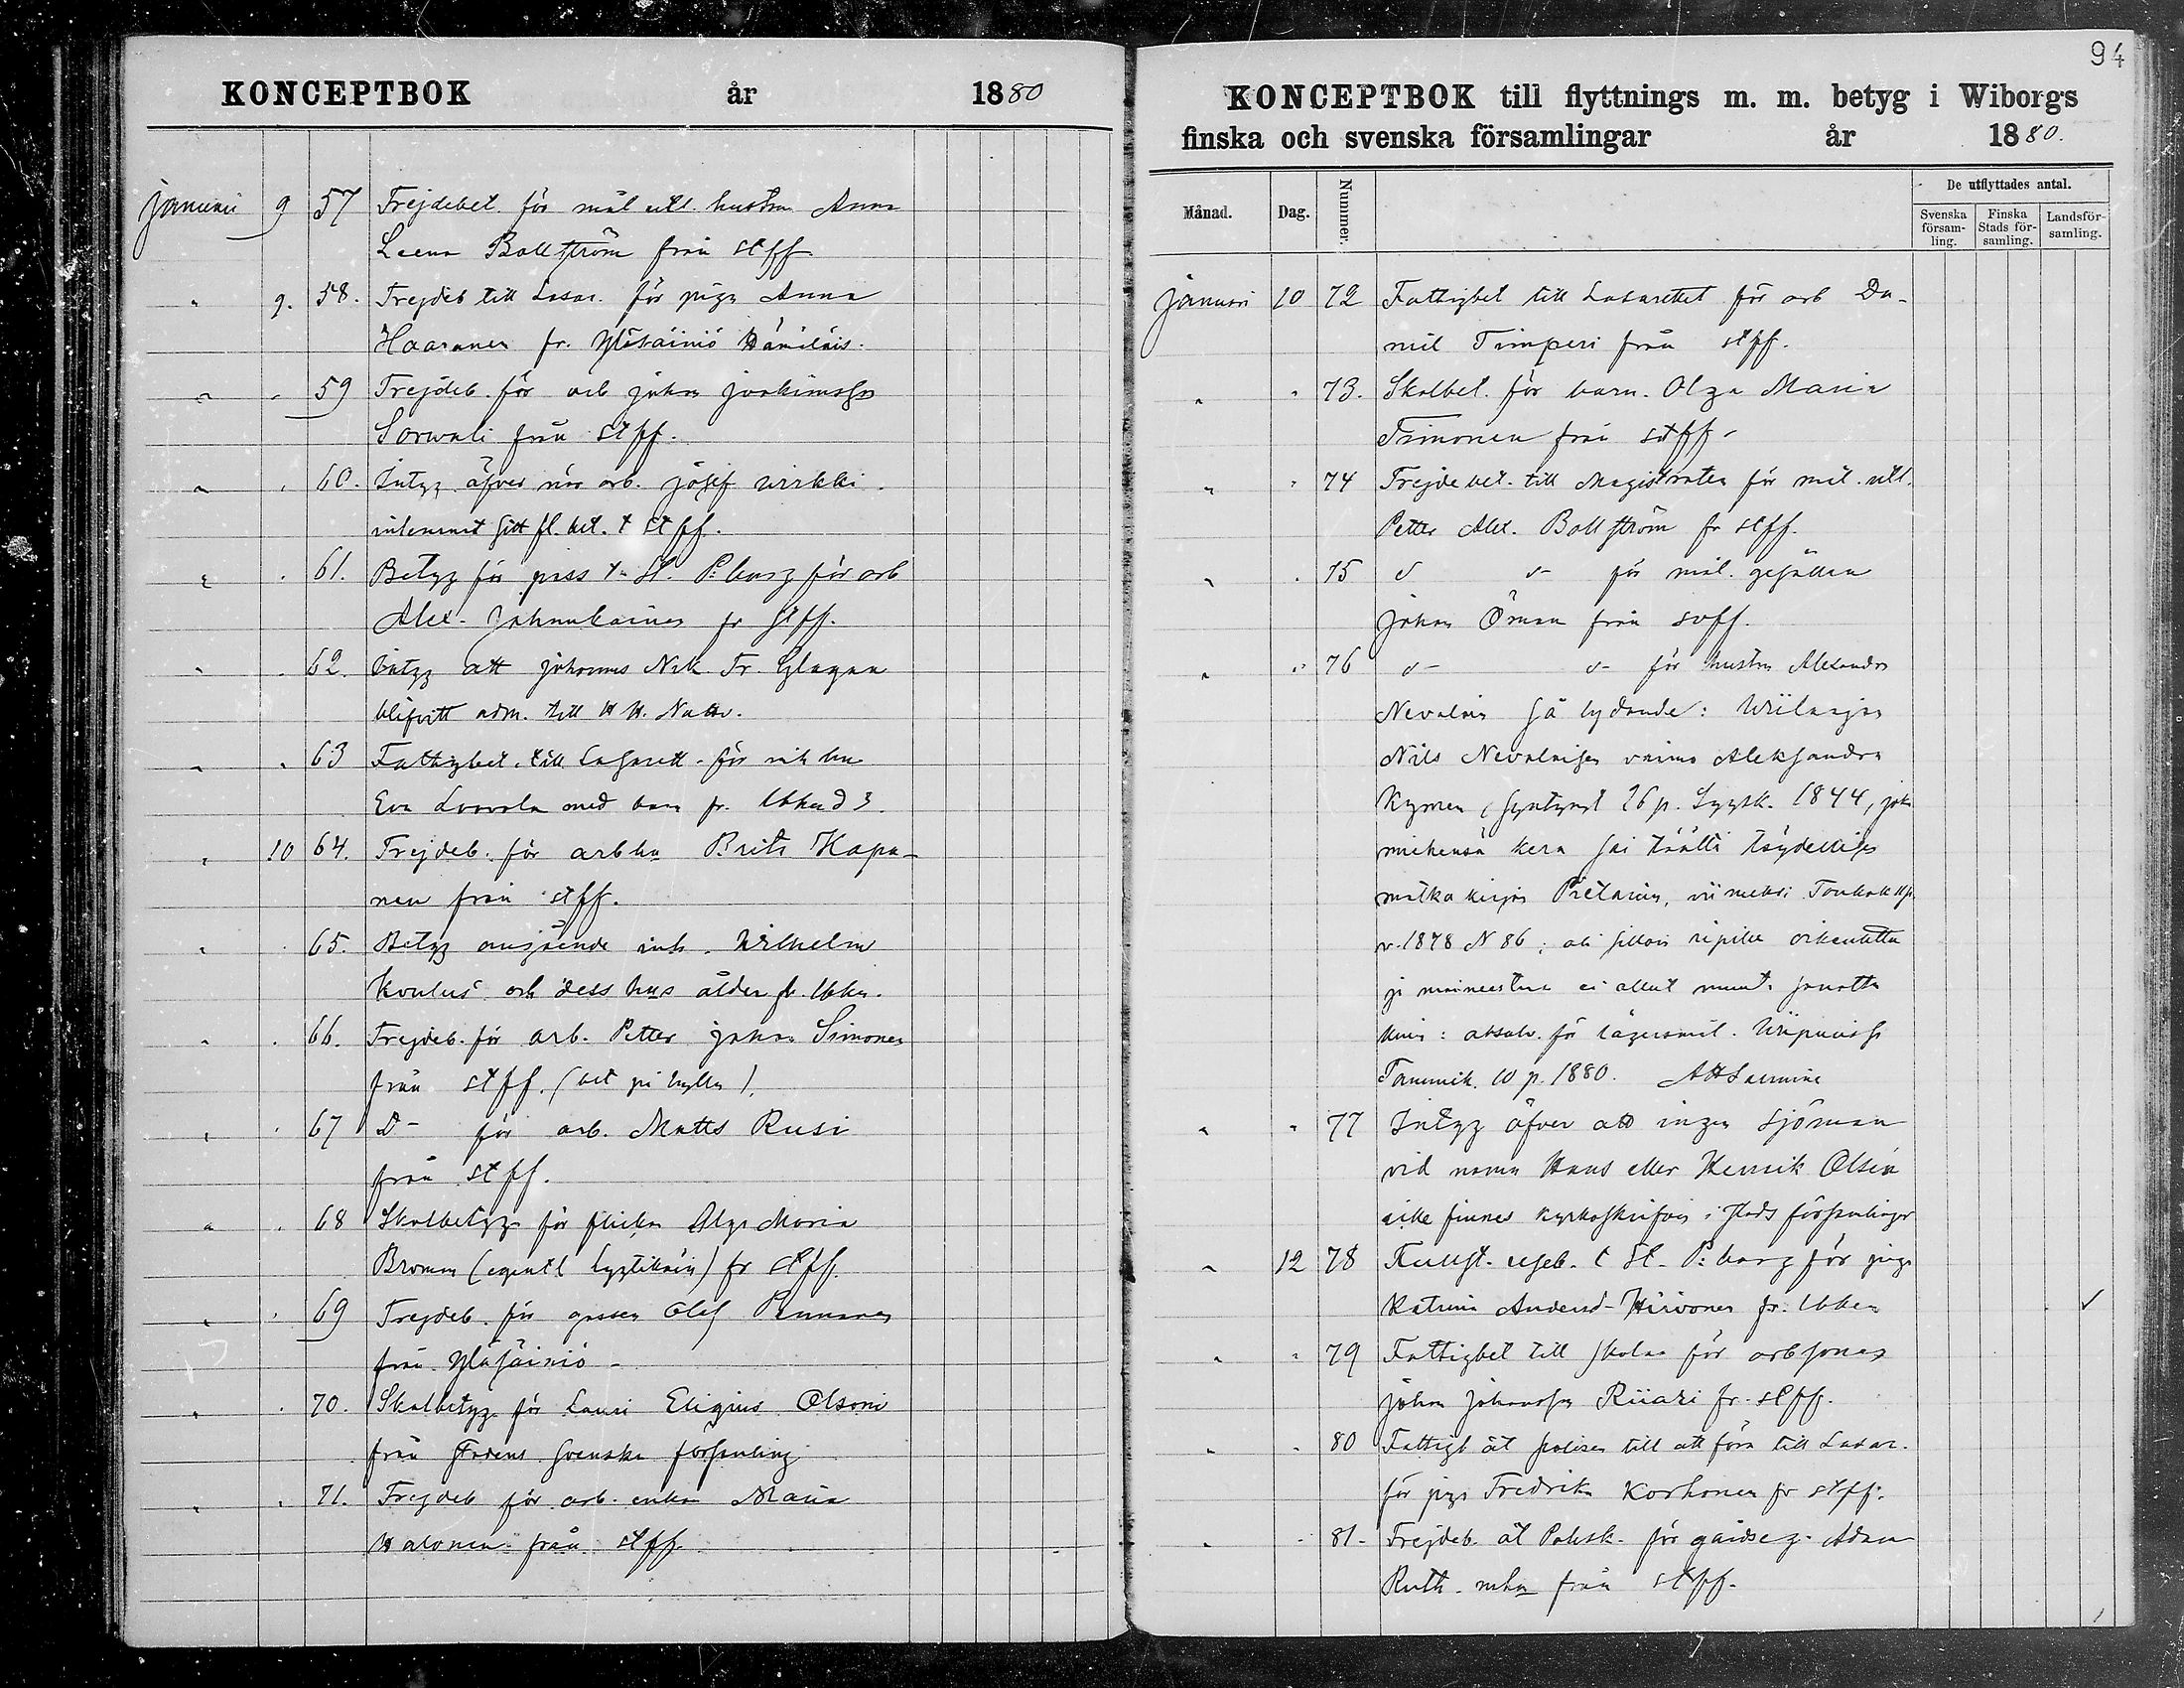 94
KONCEPTBOK år 1880
januari 9 57 Frejdebet. för mål utl. hustru Anna
Leena Bollström från stff
" 9. 58. Frejdeb till Lasar. för piga Anna
Haaranen fr. Yläsäiniö
" " 59 Frejdeb. för arb johan joakimsson
Sorvali från stff.
" " 60. Intyg öfver när arb. josef Wirkki
inlemnat sitt fl. bet. t stff.
" " 61. Betyg för pass t. St. P:burg för arb
Alex. fr stff.
" " 62. Intyg att johannes Nik. Fr.
blifvitt adm. till H H. Nattv.
" " 63 Fattigbet. till Lasarett. för inh hu
Eva med barn fr.
" 10 64. Frejdeb. för arbhu Brita Kapa-
nen från stff.
" " 65. Betyg angående inh. Wilhelm
och dess hus ålder fr.
" " 66. Frejdeb. för arb. Petter johan Simonen
från stff. (bet på hyllan).
" " 67 D- för arb. Matts Rusi
från stff.
" " 68 Skolbetyg för flickan Olga Maria
(egentl. Lyytikäin) fr stff.
" " 69 Frejdeb. för gossen Olof
från Yläsäiniö -
" " 70. Skolbetyg för Lauri Eligius Olsoni
från stadens svenska församling
" " 71. Frejdeb för arb. enkan Maria
Halonen från stff
KONCEPTBOK till flyttnings m. m. betyg i Wiborgs
finska och svenska församlingar år 1880.
Månad. Dag. Nummer. De utflyttades antal.
Svenska försam-ling. Finska Stads för-samling. Landsför-samling.
januari 10 72 Fattigbet till Lasarettet för arb Da-
niel Timperi från stff.
" " 73. Skolbet. för barn. Olga Maria
Timonen från stff.
" " 74 Frejdebet. till Magistraten för mål. utl.
Petter Alex. Bollström fr stff.
" " 75 d d- för mål. gesällen
johan Öman från svff.
" " 76 d- d- för hustru Alexandra
Nevalain så lydande: Wiilaajan
Nils Nevalaisen vaimo Aleksandra
Kymen, syntynyt 26 p. Syysk. 1844, joka
miehensä kera sai täältä täydellisen
matkakirjan Pietariin, viimeksi Toukok
v. 1878 N 86; oli silloin ripillä oikeutettu
ja maineestaan ei ollut muuta sanotta
kuin: absolv. för lägersmål. Wiipurissa
Tammik. 10 p. 1880. A H Saxmine
" " 77 Intyg öfver att ingen sjöman
vid namn Hans eller Henrik Olsén
icke finnes kyrkoskrifven i stads församlingar
" 12 78 Fullst. t St. P:burg för piga
Katrina Andersd- Hirvonen fr. ✓
" " 79 Fattigbet till skolan för arbsonen
johan johansson Riiari fr. stff.
" " 80 Fattigb åt polisen till att föra till Lasar.
för piga Fredrika Korhonen fr stff.
" " 81- Frejdeb. åt Polisk. för gårdseg. Adam
Ruth från stff.